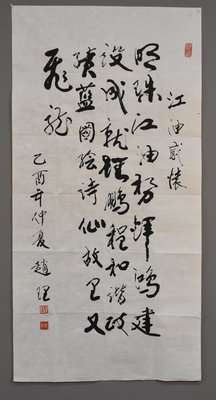 江油感懷
明珠江油輝鴻建
設成就鵬程和諧政
績藍圖繪詩仙故里又
飛龍
乙酉年仲夏趙理